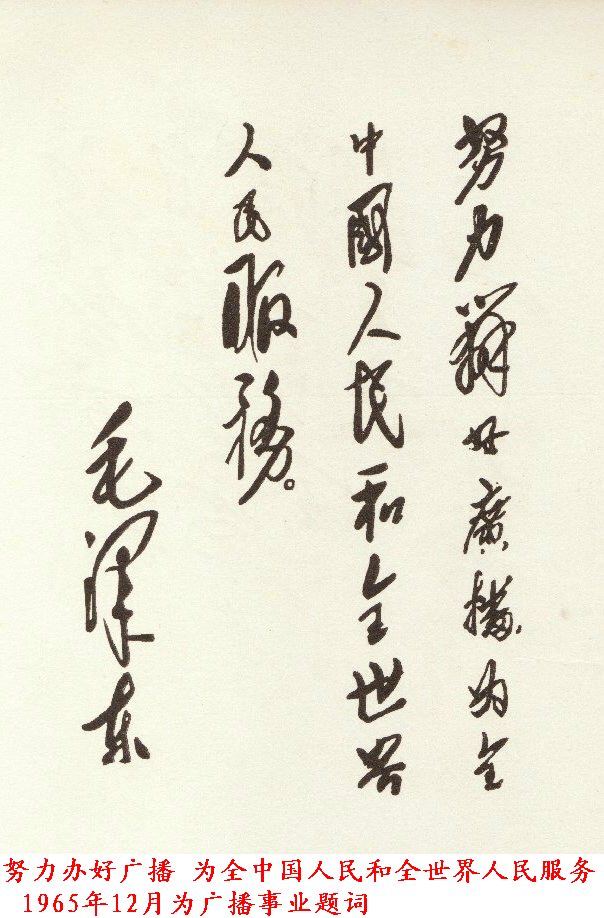 努力辦好廣播为全
中國人民和全世界
人民服務。
毛泽东
努力办好广播 为全中国人民和全世界人民服务
1965年12月为广播事业题词